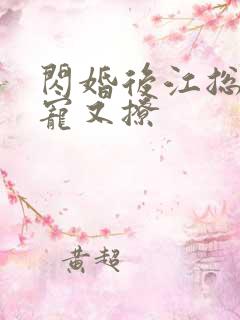 閃婚後江総
寵又撩
黄超